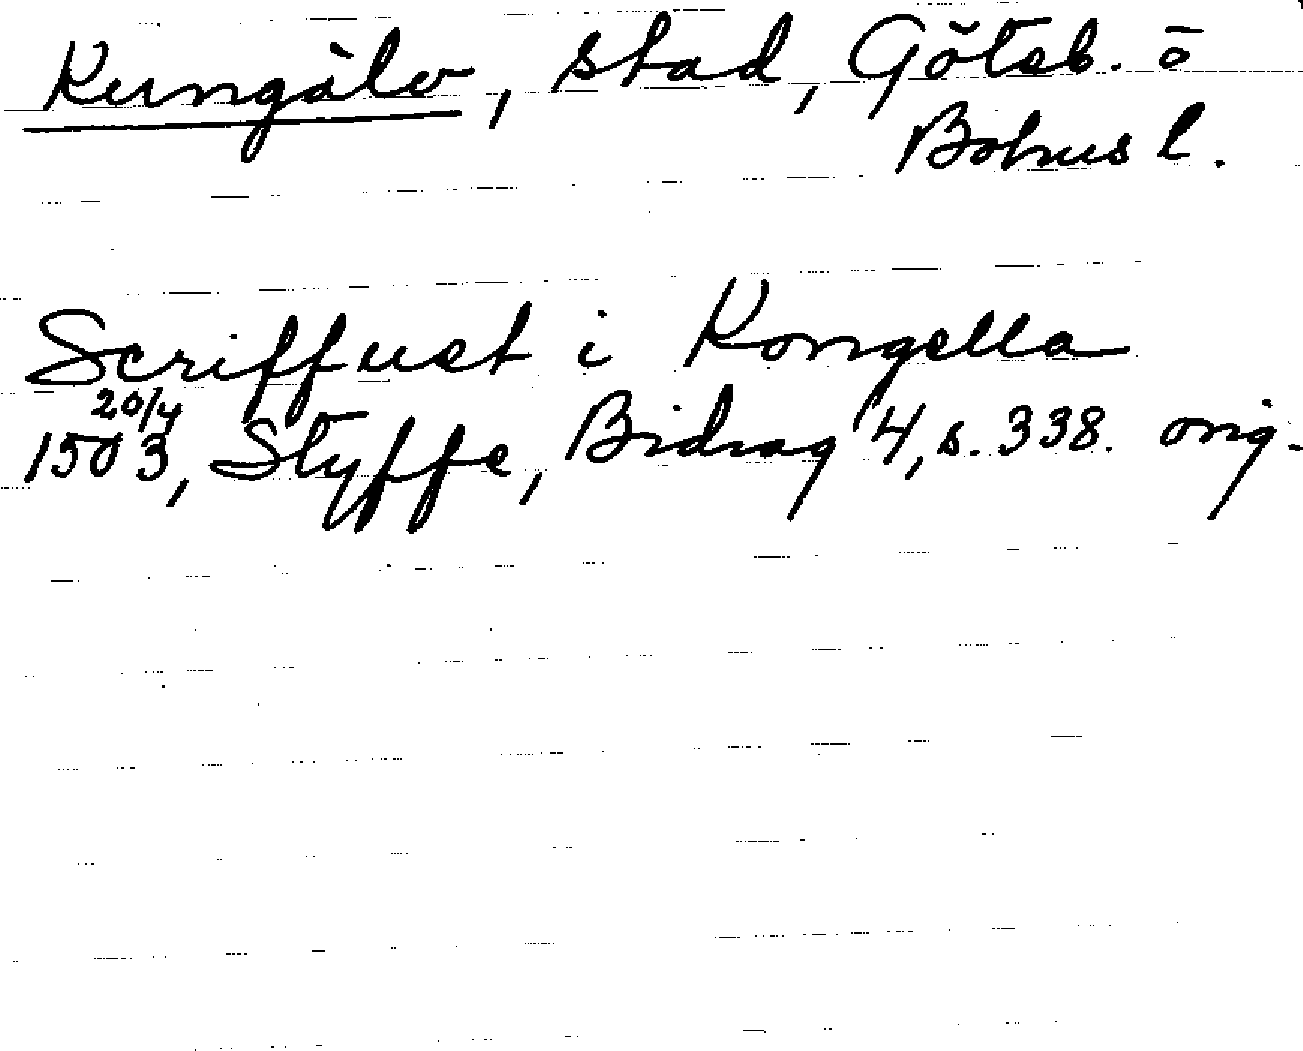 Kungälv, stad, Göteb. o
Bohus l.
Scriffuet i Kongella
20/4
1503, Styffe, Bidrag 4, s. 338. orig.